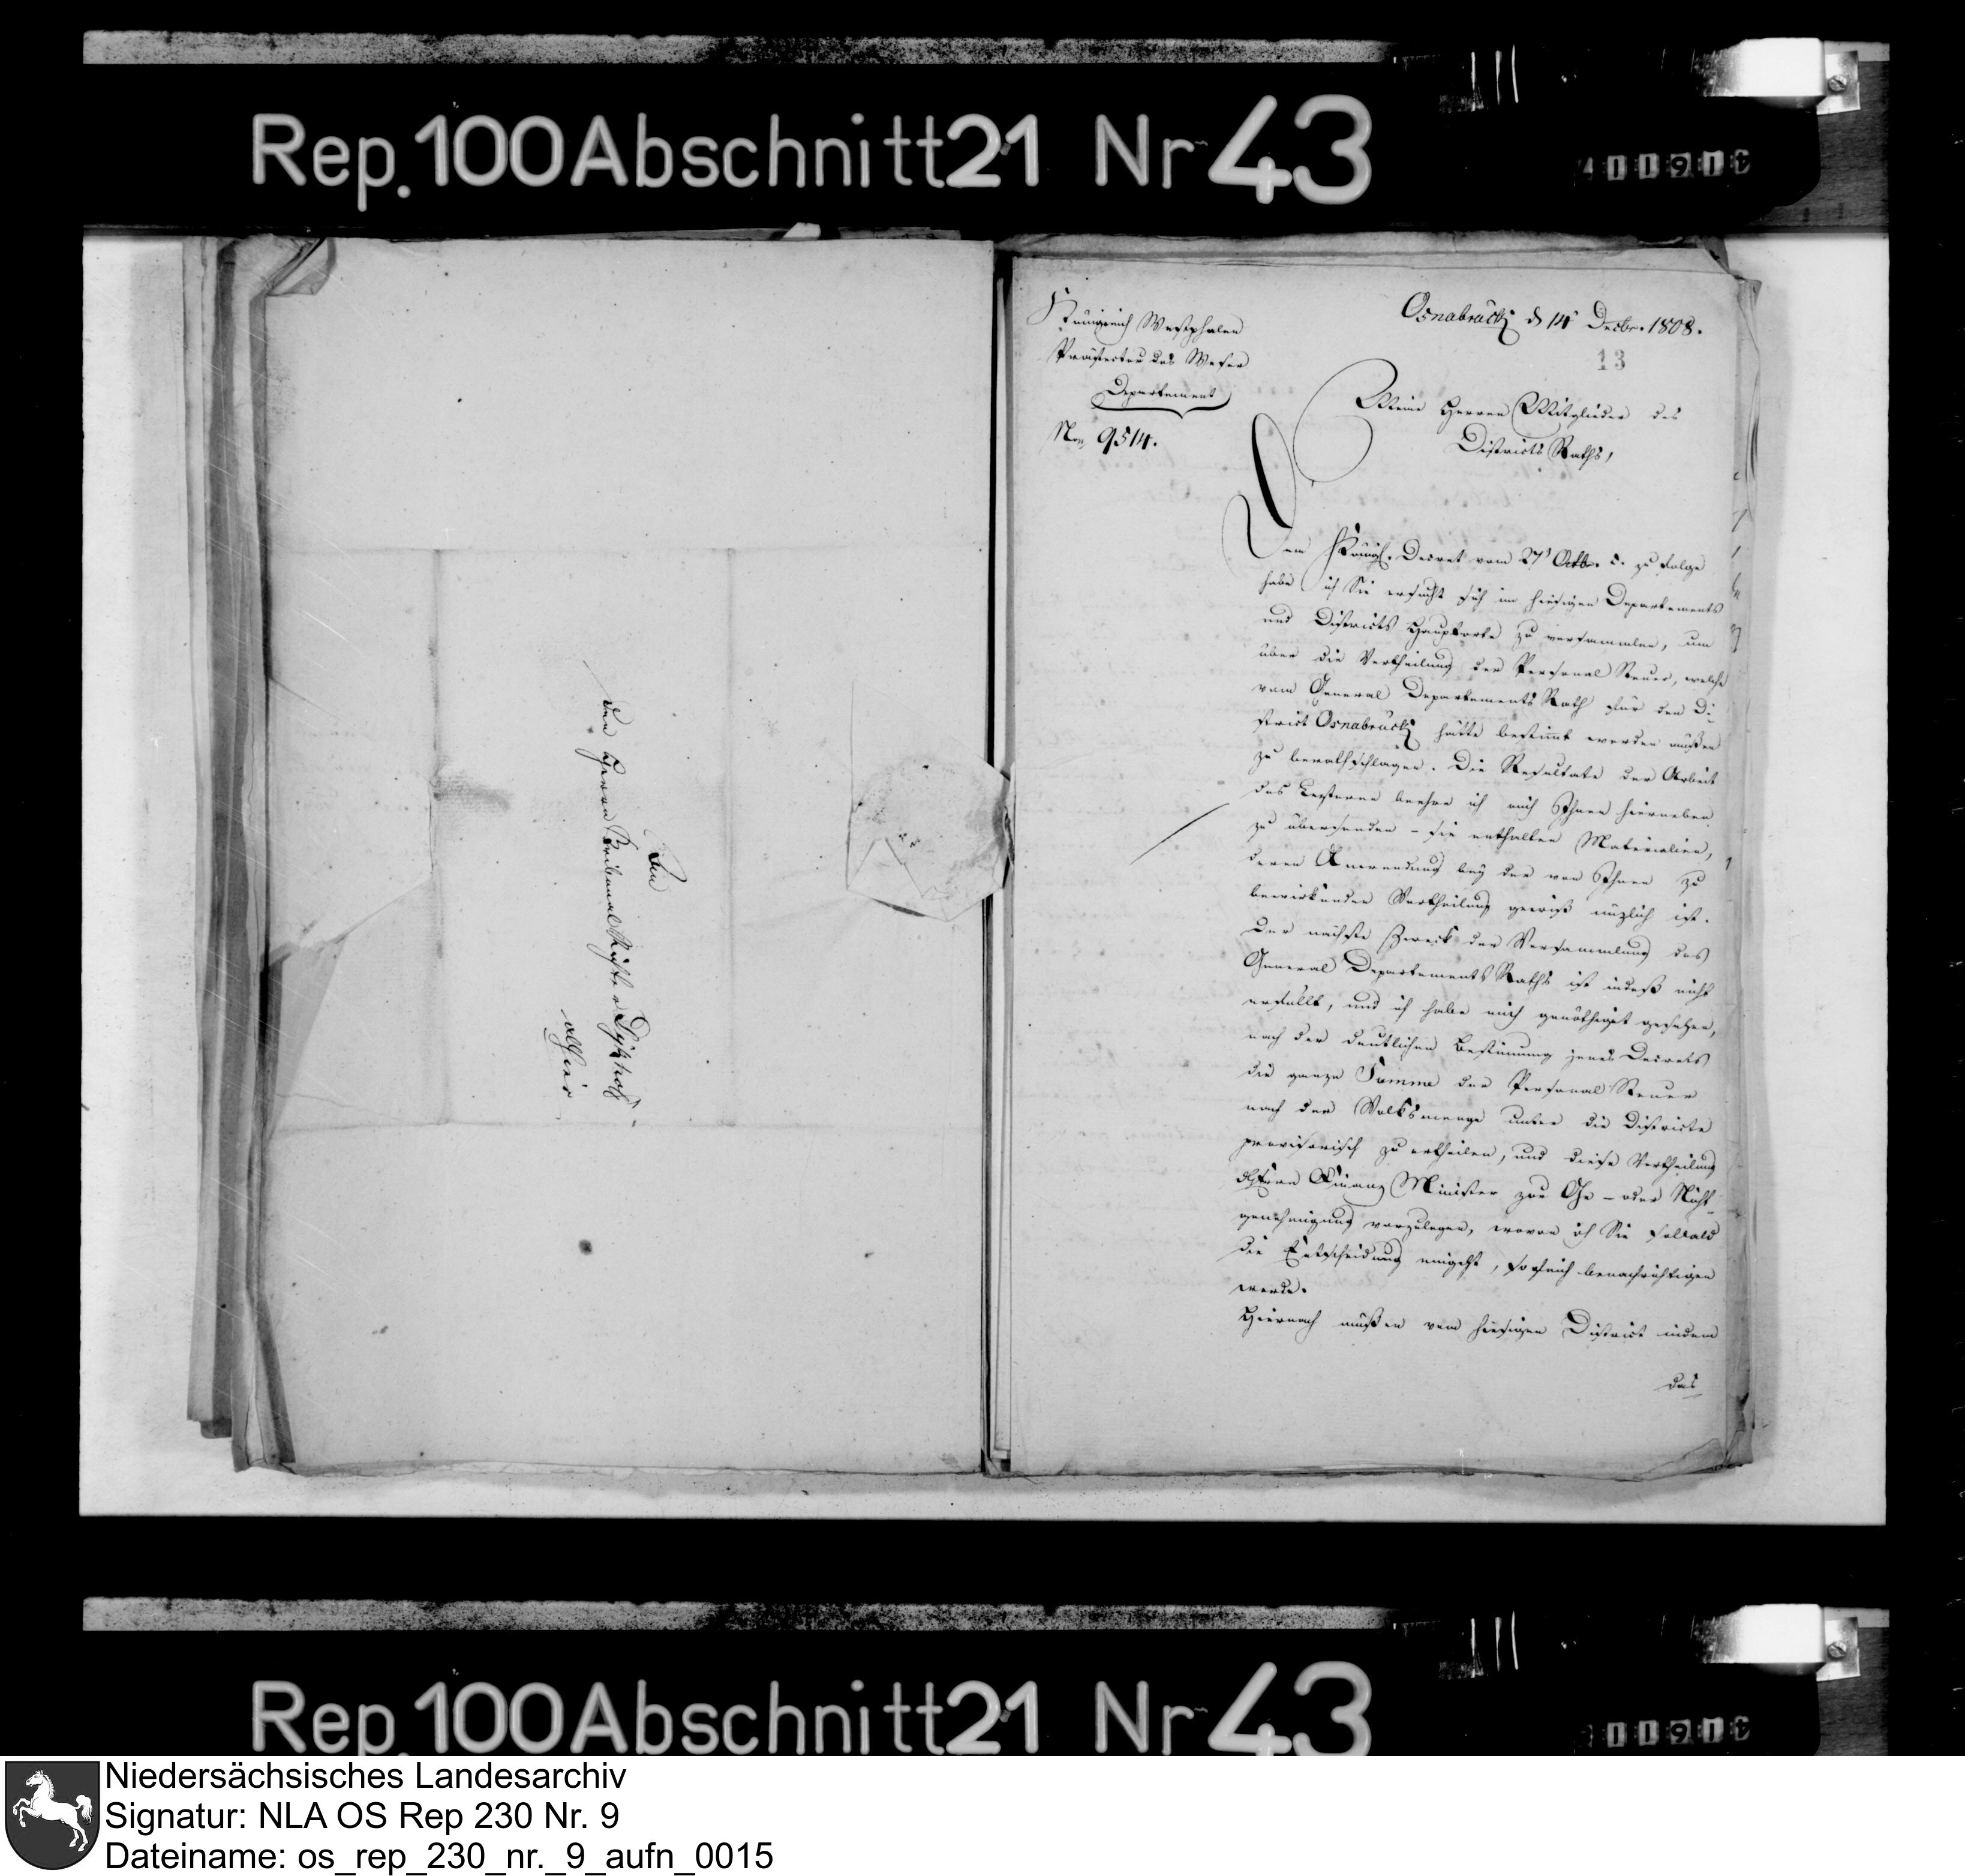 Rep. 100 Abschnitt 21 Nr 43
411911
An
den Herrn Tribunal Richter Dyckhof
allhier
Königreich Westphalen
Präfectur des Weser
Departement
No. 9514.
Osnabrück d 14t Decbr. 1808.
13
Meine Herren Mitglieder des
Districts Raths,
Dem Königl. Decret vom 27t Octbr. d. zu folge
habe ich Sie ersucht sich im hiesigen Departements
und Districts Hauptorte zu versammlen, um
über die Vertheilung der Personal Steuer, welche
vom General Departements Rath für den Di-
strict Osnabrück hätte bestimmt werden müßen
zu berathschlagen. Die Resultate der Arbeit
des Letzteren beehre ich mich Ihnen hierneben
zu übersenden – sie enthalten Materialien,
deren Anwendung bey der von Ihnen zu
bewirkenden Vertheilung gewiß nüzlich ist.
Der nächste Zweck der Versammlung des
General Departements Raths ist indeß nicht
erfüllt, und ich habe mich genöthiget gesehen,
nach der deutlichen Bestimmung jenes Decrets
die ganze Summe der Personal Steuer
nach der Volksmenge unter die Districte
provisorisch zu vertheilen, und diese Vertheilung
dem Herrn Finanz Minister zur Ge- oder Nicht-
genehmigung vorzulegen, wovon ich Sie sobald
die Entscheidung eingeht, sogleich benachrichtigen
werde.
Hiernach müßen vom hiesigen District indem
das
Rep. 100 Abschnitt 21 Nr 43
11911
Niedersächsisches Landesarchiv
Signatur: NLA OS Rep 230 Nr. 9
Dateiname: os_rep_230_nr._9_aufn_0015